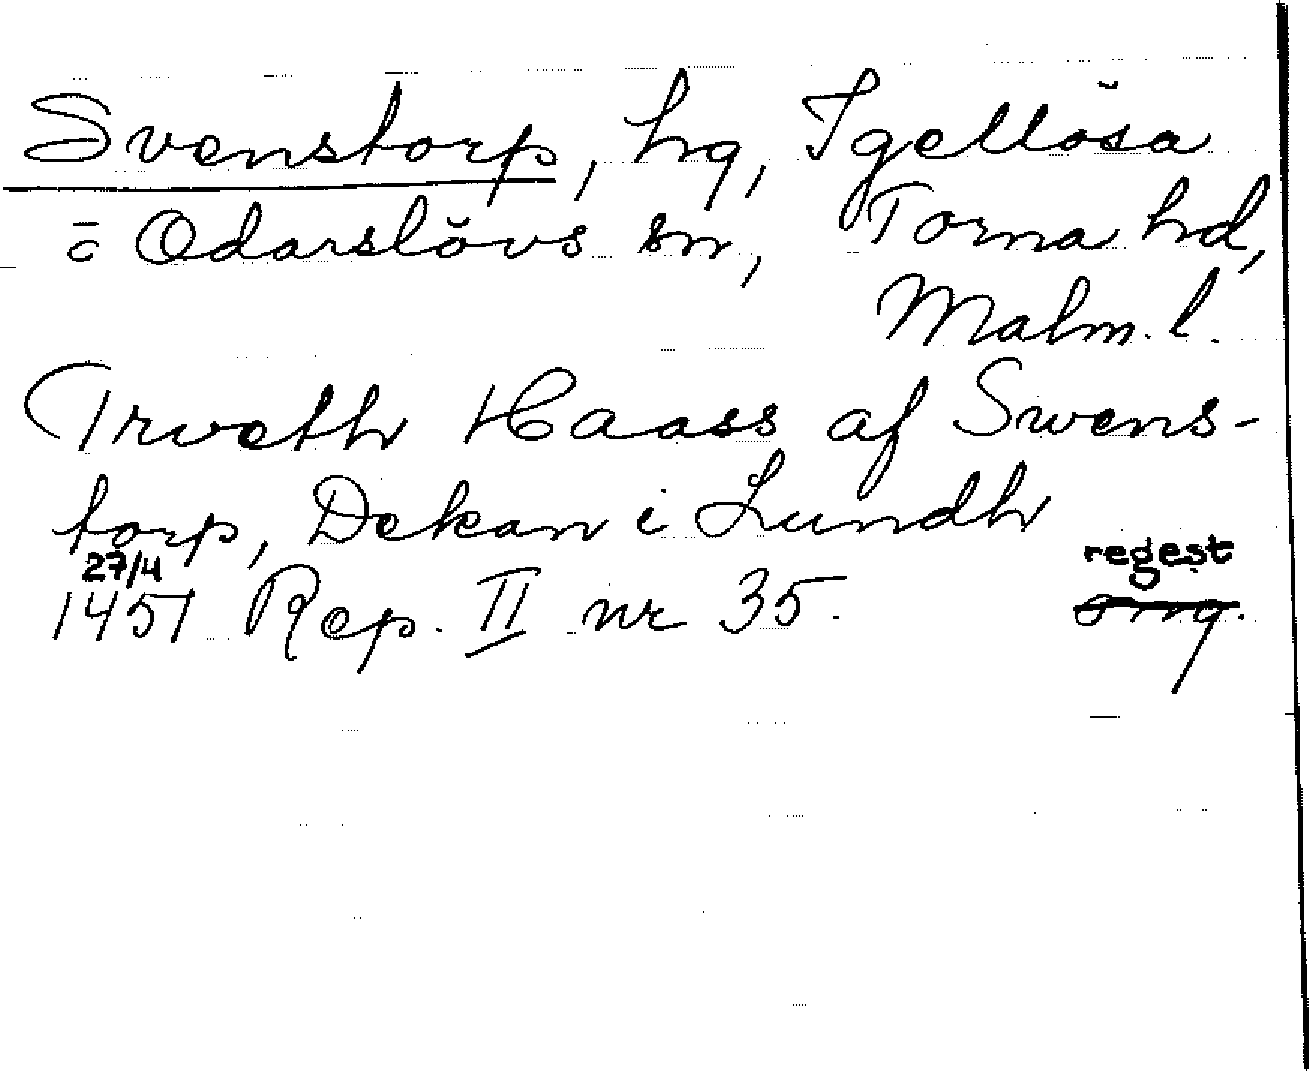 Svenstorp, hg, Igellösa
o Odarslövs sn, Torna hd,
Malm. l.
Trueth Haass af Swens-
torp, Dekan i Lundh
27/4 regest
1451 Rep. II nr 35. orig.